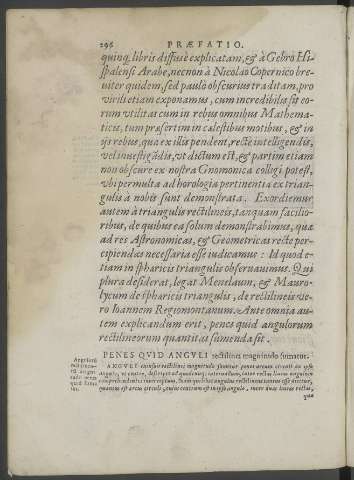 296 PRÆFATIO.
quinq; libris diffusè explicatam, & à Gebro Hi-
spalensi Arabe, necnon à Nicolao Copernico bre-
uiter quidem, sed paulò obscurius traditam, pro
virili etiam exponamus, cum incredibilis sit eo-
rum vtilitas cum in rebus omnibus Mathema-
ticis, tum præsertim in cælestibus motibus, & in
ijs rebus, quæ ex illis pendent, rectè intelligendis,
vel inuestigādis, vt dictum est, & partim etiam
non obscurè ex nostra Gnomonica colligi potest,
vbi permulta ad horologia pertinentia ex trian-
gulis à nobis sunt demonstrata. Exordiemur
autem à triangulis rectilineis, tanquam facilio-
ribus, de quibus ea solum demonstrabimus, quæ
ad res Astronomicas, & Geometricas rectè per-
cipiendas necessaria esse iudicamus: Id quod e-
tiam in sphæricis triangulis obseruauimus. Qui
plura desiderat, legat Menelaum, & Mauro-
lycum de sphæricis triangulis, de rectilineis ve-
ro Ioannem Regiomontanum. Ante omnia au-
tem explicandum erit, penes quid angulorum
rectilineorum quantitas sumenda sit.
PENES QVID ANGVLI rectilinei magnitudo sumatur.
Angulorū
rectilineo-
rū magni-
tudo penes
quid suma-
tur.
ANGVLI cuiusuis rectilinei magnitudo sumitur penes arcum circuli ex ipso
angulo, vt centro, descripti ad quoduis interuallum, inter rectas lineas angulum
comprehendentes interceptum. Nam quilibet angulus rectilineus tantus esse dicitur,
quantus est arcus circuli, cuius centrum est in ipso angulo, inter duas lineas rectas,
quæ